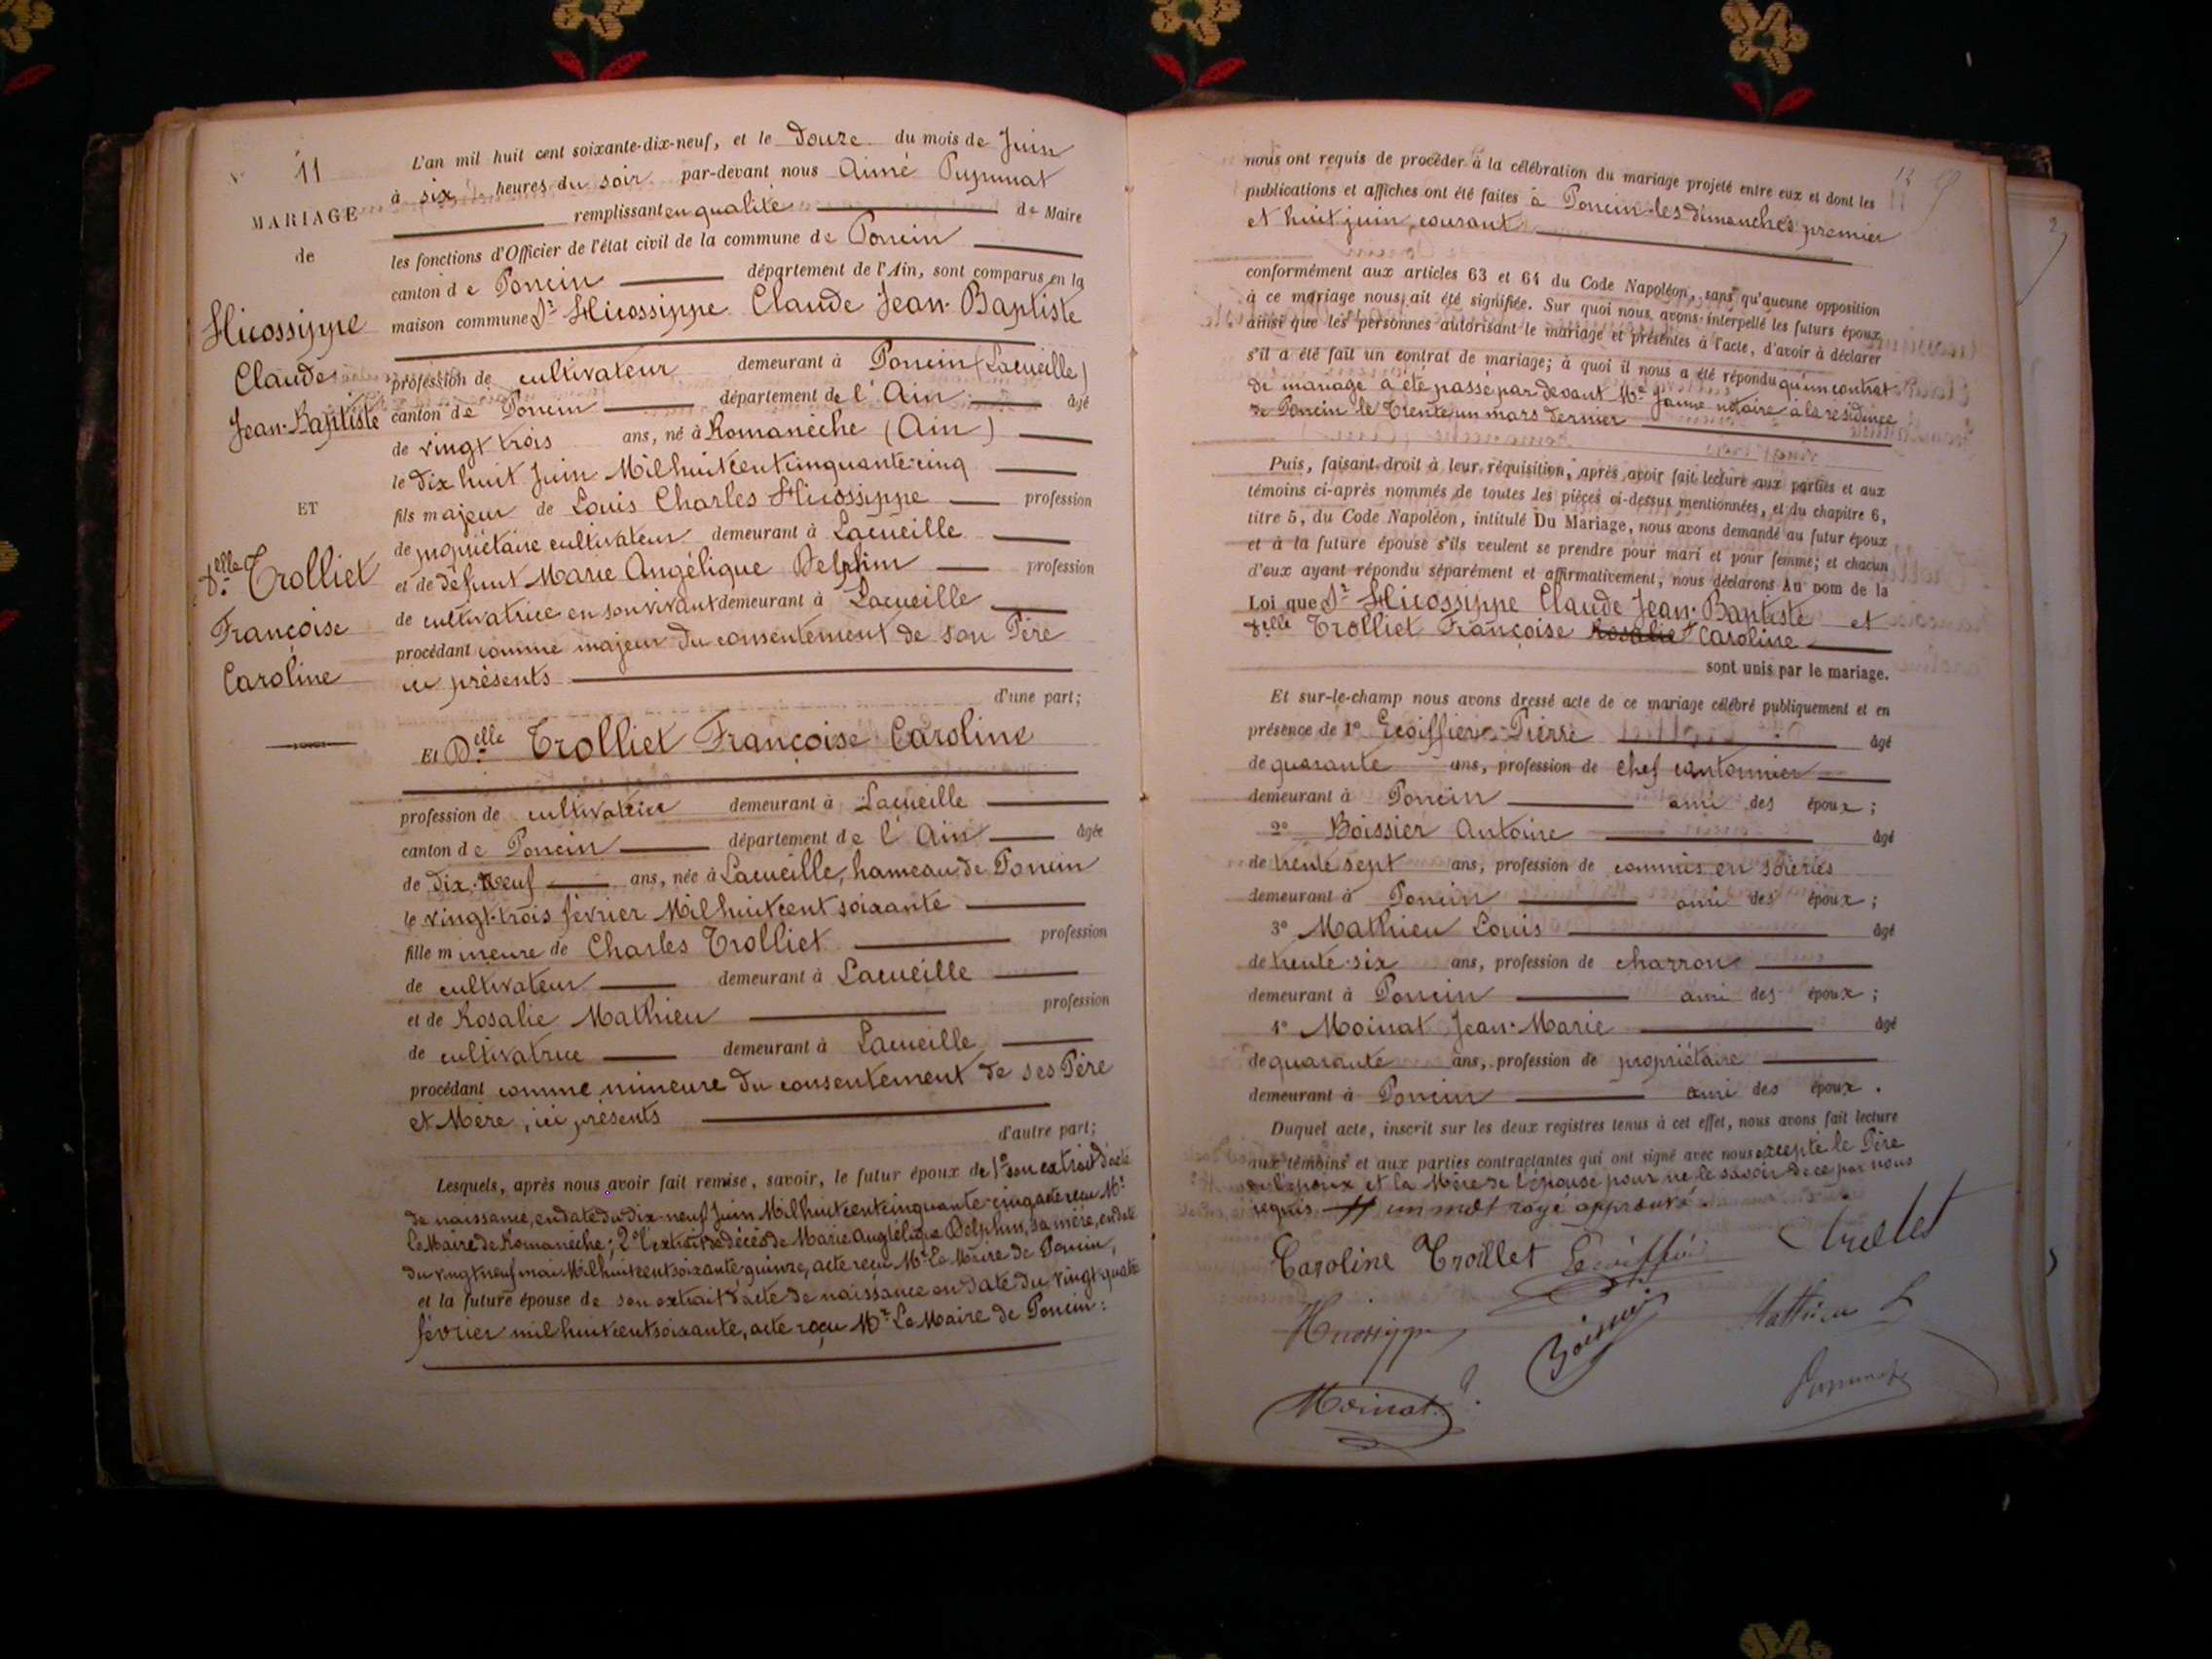 11
MARIAGE
de
Hicossippe
Claude
Jean-Baptiste
ET
Delle Trolliet
Françoise
Caroline
L'an mil huit cent soixante-dix-neuf, et le douze du mois de Juin
à six heures du soir par-devant nous Aimé Pupunat
remplissant en qualité de Maire
les fonctions d'Officier de l'état civil de la commune de Poncin
canton de Poncin département de l'Ain, sont comparus en la
maison commune Sr Hicossippe Claude Jean-Baptiste
profession de cultivateur demeurant à Poncin (Lacueille)
canton de Poncin département de l'Ain âgé
de vingt trois ans, né à Romanèche (Ain)
le dix huit Juin Mil huit cent cinquante-cinq
fils majeur de Louis Charles Hicossippe profession
de propriétaire cultivateur demeurant à Lacueille
et de défunt Marie Angélique Delphin profession
de cultivatrice en son vivant demeurant à Lacueille
procédant comme majeur du consentement de son Père
ici présents
d'une part;
Et Delle Trolliet Françoise Caroline
profession de cultivatrice demeurant à Lacueille
canton de Poncin département de l'Ain âgée
de dix-neuf ans, née à Lacueille, hameau de Poncin
le vingt-trois février Mil huit cent soixante
fille mineure de Charles Trolliet profession
de cultivateur demeurant à Lacueille
et de Rosalie Mathieu profession
de cultivatrice demeurant à Lacueille
procédant comme mineure du consentement de ses Père
et Mère, ici présents
d'autre part;
Lesquels, après nous avoir fait remise, savoir, le futur époux de 1° son extrait d'acte
de naissance, en date du dix-neuf Juin Mil huit cent cinquante-cinq acte reçu Mr
le Maire de Romanèche; 2° l'extrait de décès de Marie Anglélique Delphin, sa mère, en date
du vingt neuf mai Mil huit cent soixante quinze, acte reçu Mr Le Maire de Poncin,
et la future épouse de son extrait d'acte de naissance en date du vingt-quatre
février mil huit cent soixante, acte reçu Mr Le Maire de Poncin:
nous ont requis de procéder à la célébration du mariage projeté entre eux et dont les
publications et affiches ont été faites à Poncin les dimanches premier
et huit juin, courant
conformément aux articles 63 et 64 du Code Napoléon, sans qu'aucune opposition
à ce mariage nous ait été signifiée. Sur quoi nous avons interpellé les futurs époux,
ainsi que les personnes autorisant le mariage et présentes à l'acte, d'avoir à déclarer
s'il a été fait un contrat de mariage; à quoi il nous a été répondu qu'un contrat
de mariage a été passé par devant Me Janne notaire à la résidence
de Poncin le trente un mars dernier
Puis, faisant droit à leur réquisition, après avoir fait lecture aux parties et aux
témoins ci-après nommés de toutes les pièces ci-dessus mentionnées, et du chapitre 6,
titre 5, du Code Napoléon, intitulé Du Mariage, nous avons demandé au futur époux
et à la future épouse s'ils veulent se prendre pour mari et pour femme; et chacun
d'eux ayant répondu séparément et affirmativement, nous déclarons Au nom de la
Loi que Sr Hicossippe Claude Jean-Baptiste et
Delle Trolliet Françoise Rosalie Caroline
sont unis par le mariage.
Et sur-le-champ nous avons dressé acte de ce mariage célébré publiquement et en
présence de 1° Ecoiffier Pierre âgé
de quarante ans, profession de chef cantonnier
demeurant à Poncin ami des époux;
2° Boissier Antoine âgé
de trente sept ans, profession de commis en soieries
demeurant à Poncin ami des époux;
3° Mathieu Louis âgé
de trente-six ans, profession de charron
demeurant à Poncin ami des époux;
4° Moinat Jean-Marie âgé
de quarante ans, profession de propriétaire
demeurant à Poncin ami des époux.
Duquel acte, inscrit sur les deux registres tenus à cet effet, nous avons fait lecture
aux témoins et aux parties contractantes qui ont signé avec nous excepté le Père
de l'époux et la Mère de l'épouse pour ne le savoir de ce par nous
requis # un mot rayé approuvé.
Caroline Trolliet
Hicossippe
Boissier
Mathieu L
Moinat
Pupunat